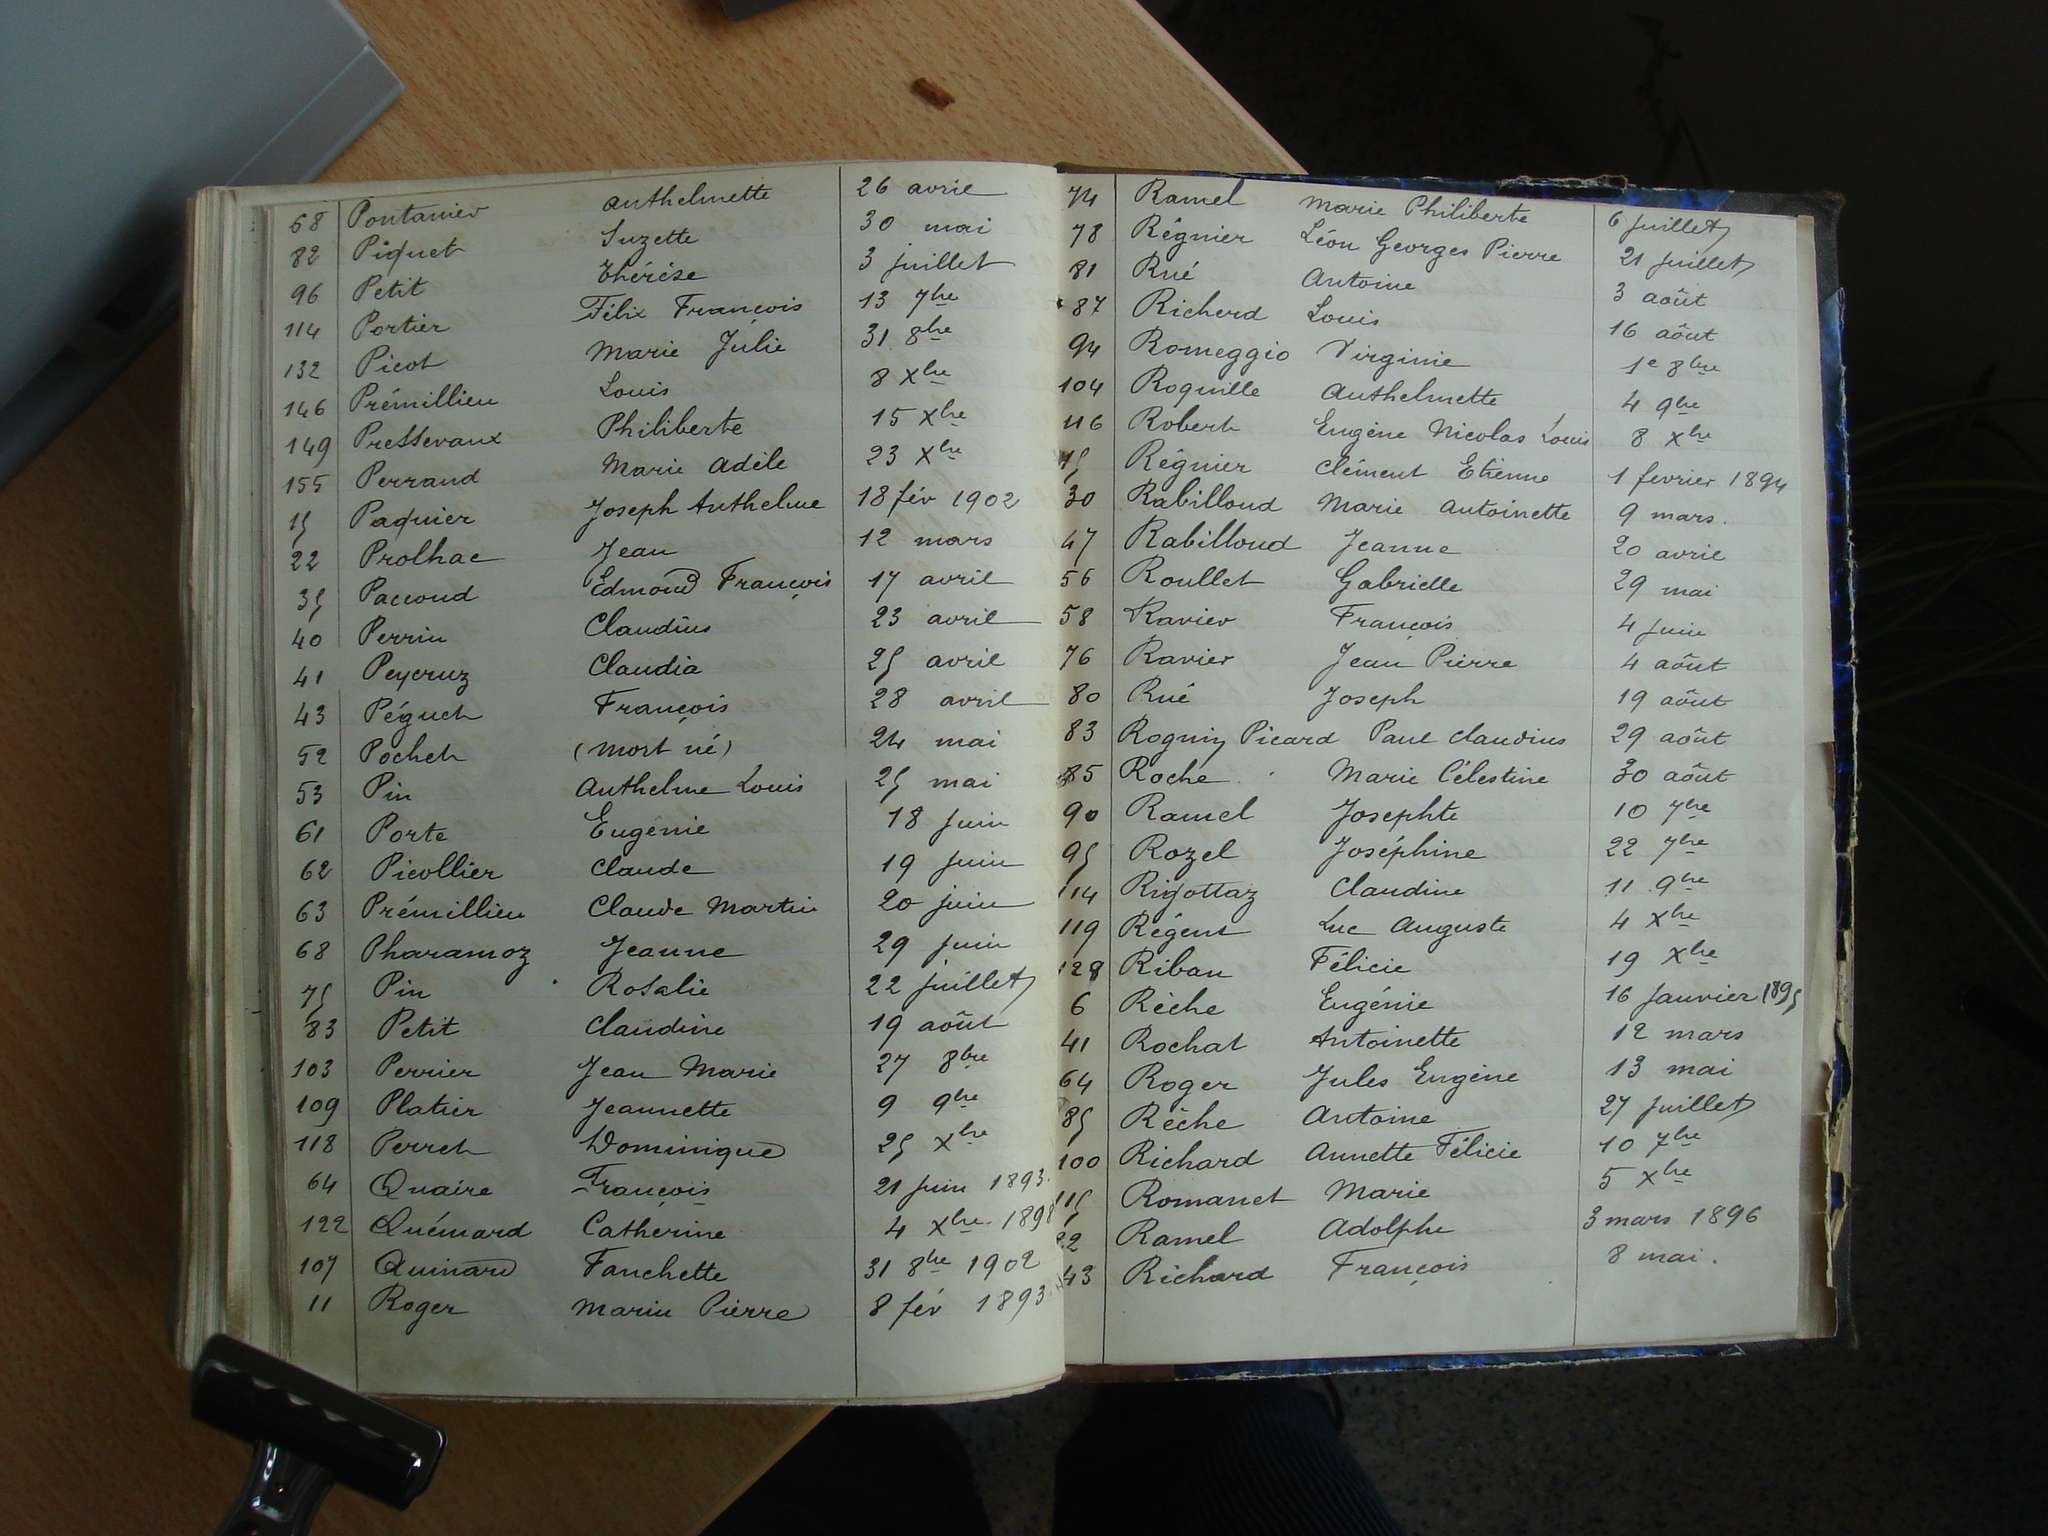 68 Pontanier Anthelmette 26 avril
82 Piquet Suzette 30 mai
96 Petit Thérèse 3 juillet
114 Portier Félix François 13 7bre
132 Picot Marie Julie 31 8bre
146 Prémillieu Louis 8 Xbre
149 Pressevaux Philiberte 15 Xbre
155 Perraud Marie Adèle 23 Xbre
15 Paquier Joseph Anthelme 18 fév 1902
22 Prolhac Jean 12 mars
35 Paccoud Edmond François 17 avril
40 Perrin Claudius 23 avril
41 Peycruz Claudia 25 avril
43 Péguet François 28 avril
52 Pochet (mort né) 24 mai
53 Pin Anthelme Louis 25 mai
61 Porte Eugénie 18 juin
62 Picollier Claude 19 juin
63 Prémillieu Claude Martin 20 juin
68 Pharamoz Jeanne 29 juin
75 Pin Rosalie 22 juillet
83 Petit Claudine 19 août
103 Perrier Jean Marie 27 8bre
109 Platier Jeannette 9 9bre
118 Perret Dominique 25 Xbre
64 Quaire François 21 juin 1893.
122 Quémard Catherine 4 Xbre 1898
107 Quinard Fanchette 31 8bre 1902
11 Roger Marin Pierre 8 fév 1893
74 Ramel Marie Philiberte 6 juillet
78 Régnier Léon Georges Pierre 21 juillet
81 Rué Antoine 3 août
87 Richerd Louis 16 août
94 Romeggio Virginie 1e 8bre
104 Roquille Anthelmette 4 9bre
116 Robert Eugène Nicolas Louis 8 Xbre
15 Régnier Clément Etienne 1 fevrier 1894
30 Rabilloud Marie Antoinette 9 mars.
47 Rabilloud Jeanne 20 avril
56 Roullet Gabrielle 29 mai
58 Ravier François 4 juin
76 Ravier Jean Pierre 4 août
80 Rué Joseph 19 août
83 Picard Paul Claudius 29 août
85 Roche Marie Célestine 30 août
90 Ramel Josephte 10 7bre
95 Rozel Joséphine 22 7bre
114 Rigottaz Claudine 11 9bre
119 Régent Luc Auguste 4 Xbre
128 Riban Félicie 19 Xbre
6 Rèche Eugénie 16 janvier 1895
41 Rochat Antoinette 12 mars
64 Roger Jules Eugène 13 mai
85 Rèche Antoine 27 juillet
100 Richard Annette Félicie 10 7bre
115 Romanet Marie 5 Xbre
22 Ramel Adolphe 3 mars 1896
43 Richard François 8 mai.